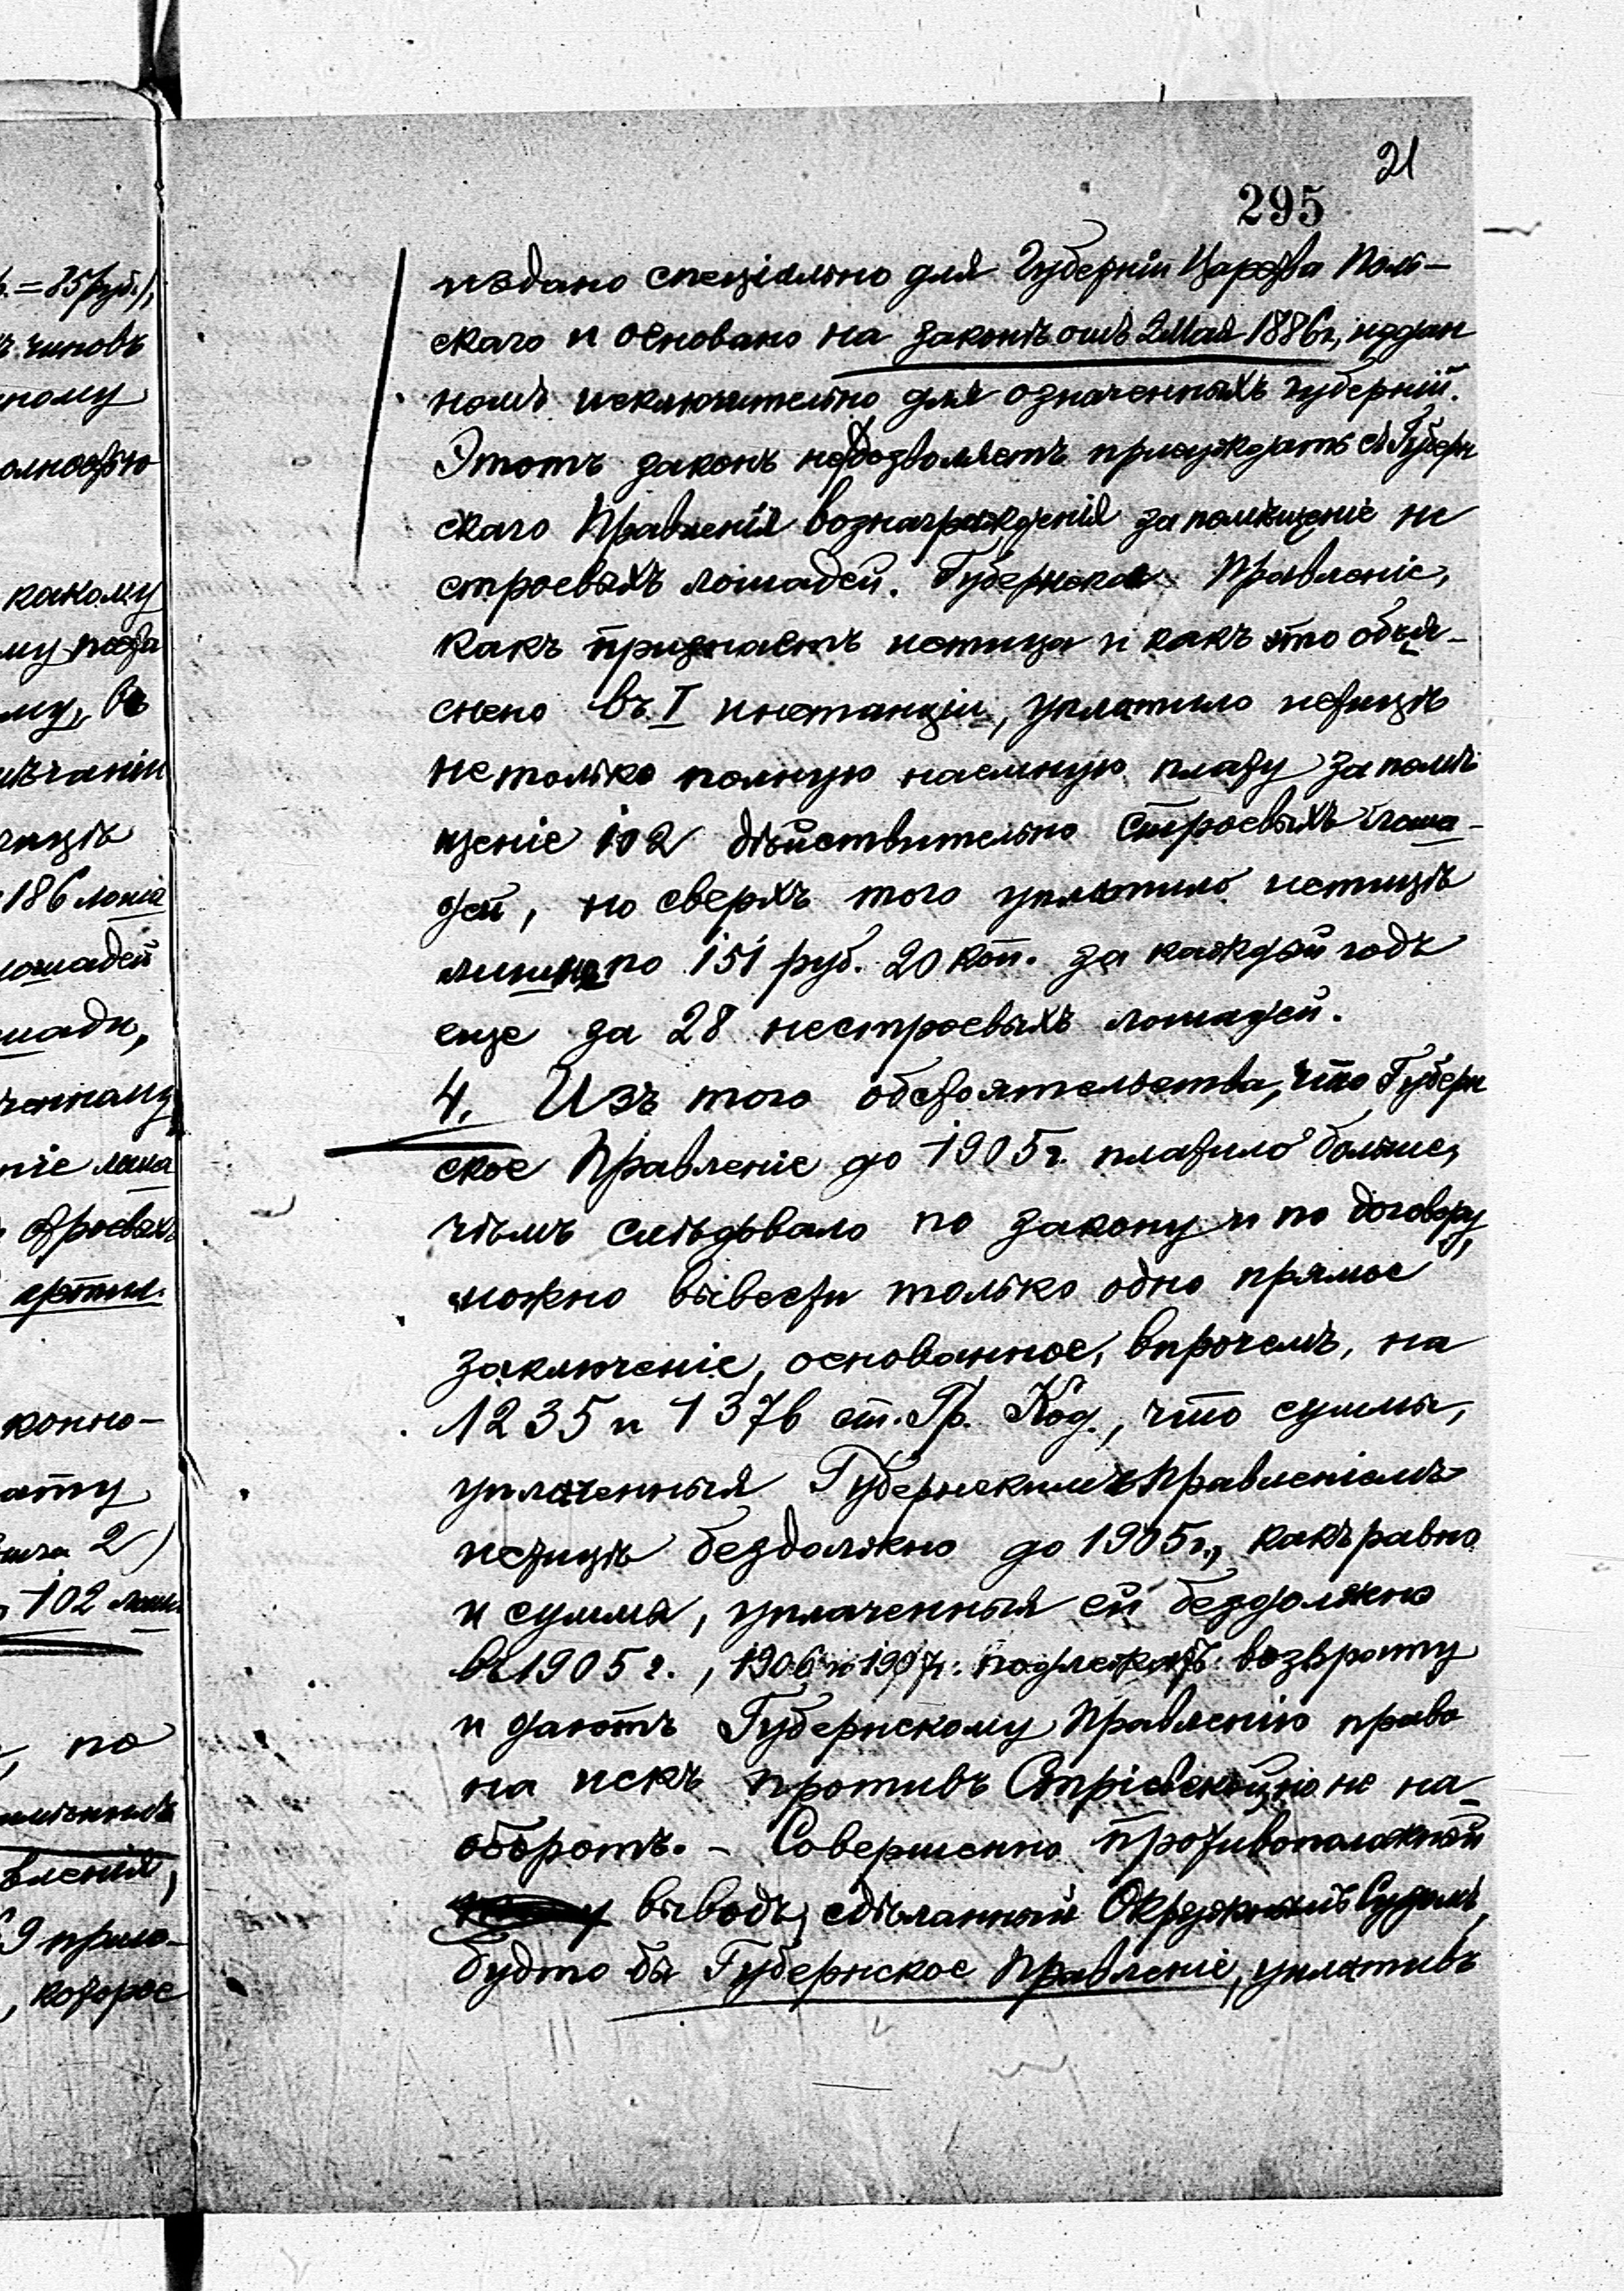 21
295
издано спеціально для Губерній Царства Поль-
скаго и основано на законѣ отъ 2 Мая 1886 г., издан
номъ исключительно для означенныхъ губерній.
Этотъ законъ не дозволяетъ присуждать съ Губерн
скаго Правленія вознагражденія за помѣщеніе не
строевыхъ лошадей. Губернское Правленіе,
какъ признаетъ истица и какъ это объя-
снено въ I инстанціи, уплатило истицѣ
не только полную наемную плату за помѣ
щеніе 102 дѣйствительно строевыхъ лоша-
дей, но сверхъ того уплатило истицѣ
лишне по 151 руб. 20 коп. за каждый годъ
еще за 28 нестроевыхъ лошадей.
4. Изъ того обстоятельства, что Губерн
ское Правленіе до 1905 г. платило больше,
чѣмъ слѣдовало по закону и по договору,
можно вывести только одно прямое
заключеніе, основанное, впрочемъ, на
1235 и 1376 ст. Гр. Код., что суммы,
уплаченныя Губернскимъ Правленіемъ
истицѣ бездолжно до 1905 г., какъ равно
и суммы, уплаченныя ей бездолжно
въ 1905 г., 1906 и 1907 г. подлежатъ возврату
и даютъ Губернскому Правленію право
на искъ противъ но не на-
оборотъ. - Совершенно противоположный
выводъ, сдѣланный Окружнымъ Судомъ,
будто бы Губернское Правленіе, уплативъ
=25 руб.),
чиновъ
ному
какому
му, въ
186 лоша
лошадей
шади,
ніе лоша
строевыхъ
конно-
2)
102 лош.
по
вленія,
9 прило-
, которое